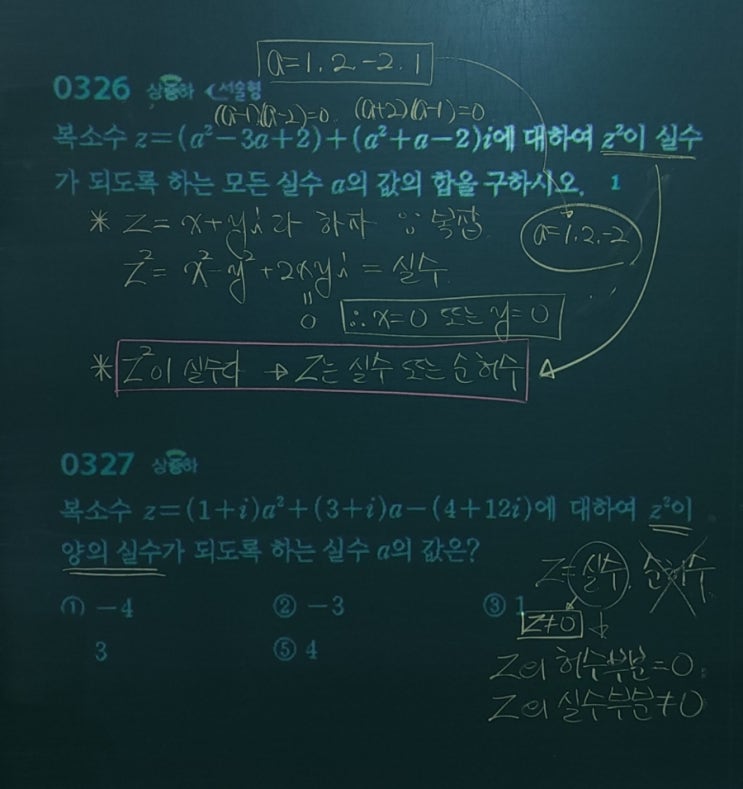 a=1, 2, -2, 1
0326 상중하 서술형
(a-1)(a-2)=0 (a+2)(a-1)=0
복소수 z=(a²-3a+2)+(a²+a-2)i에 대하여 z²이 실수
가 되도록 하는 모든 실수 a의 값의 합을 구하시오. 1
* Z = x+yi라 하자 ∵ 복잡
a=1, 2, -2
Z² = x²-y²+2xyi = 실수
=
0
∴ x=0 또는 y=0
* Z²이 실수다 → Z는 실수 또는 순허수
0327 상중하
복소수 z=(1+i)a²+(3+i)a-(4+12i)에 대하여 z²이
양의 실수가 되도록 하는 실수 a의 값은?
Z= 실수, 순허수
① -4 ② -3 ③ 1
Z≠0
3 ⑤ 4
Z의 허수부분=0
Z의 실수부분≠0